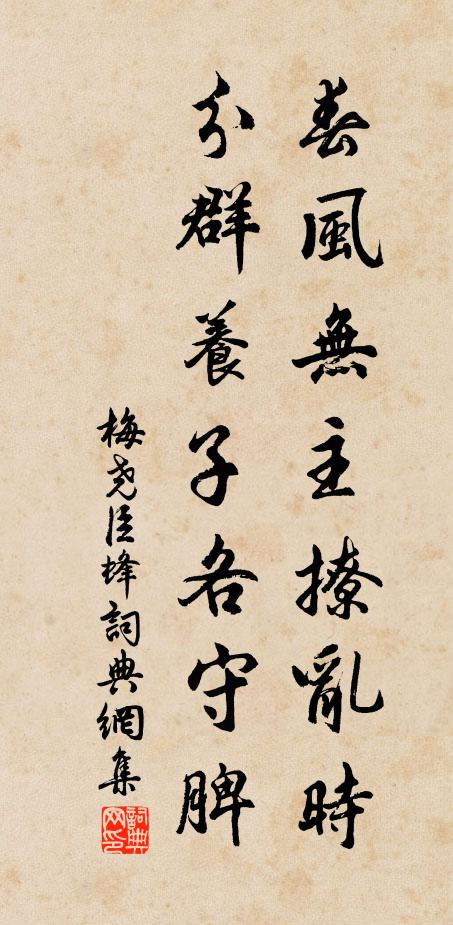 春風無主撩亂時
分群養子各守脾
梅尧臣蜂詞典網集
詞典网印